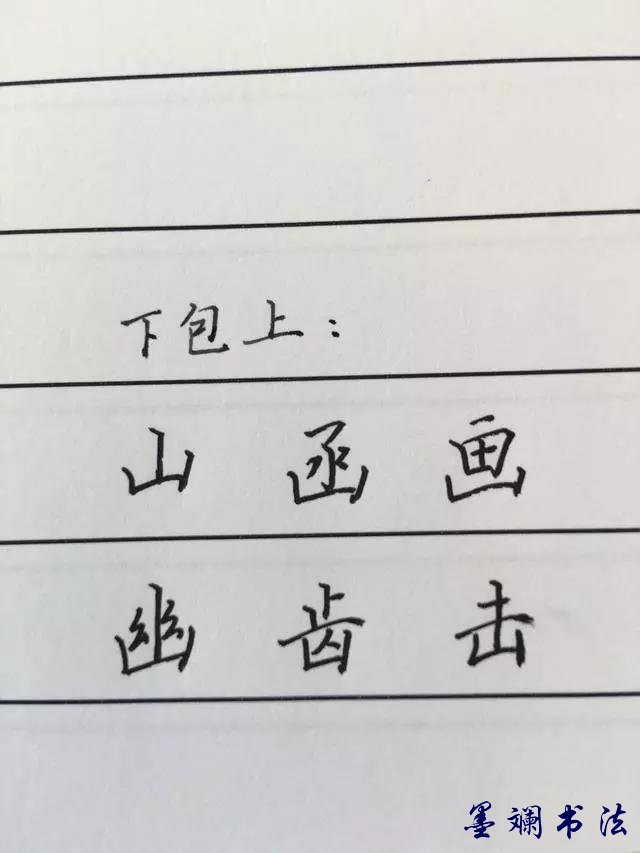 下包上：
山 函 画
幽 齿 击
墨斓书法